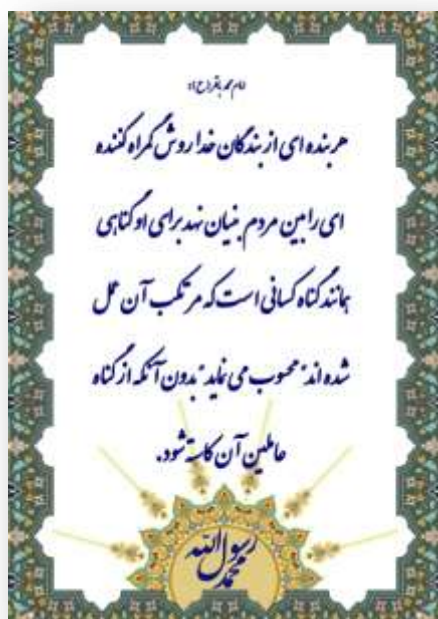 امام محمد باقر (ع):
هر بنده ای از بندگان خدا روش گمراه کننده
ای را بین مردم بنیان نهد برای او گناهی
همانند گناه کسانی است که مرتکب آن عمل
شده اند" محسوب می نماید "بدون آنکه از گناه
عاملین آن کاسته شود.
محمد رسول الله